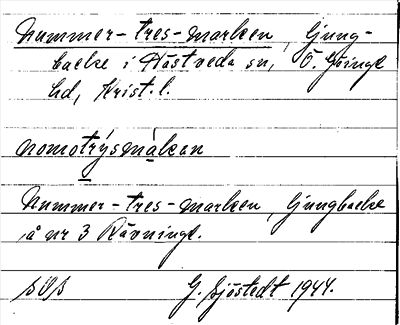 Nummer-tres-marken, Ljung-
backe i Hästveda sn, Ö. Göinge
hd, Krist. l.
nomotrýsmákan
Nummer-tres-marken, Ljungbacke
å nr 3 Rävninge.
G. Sjöstedt 1944.